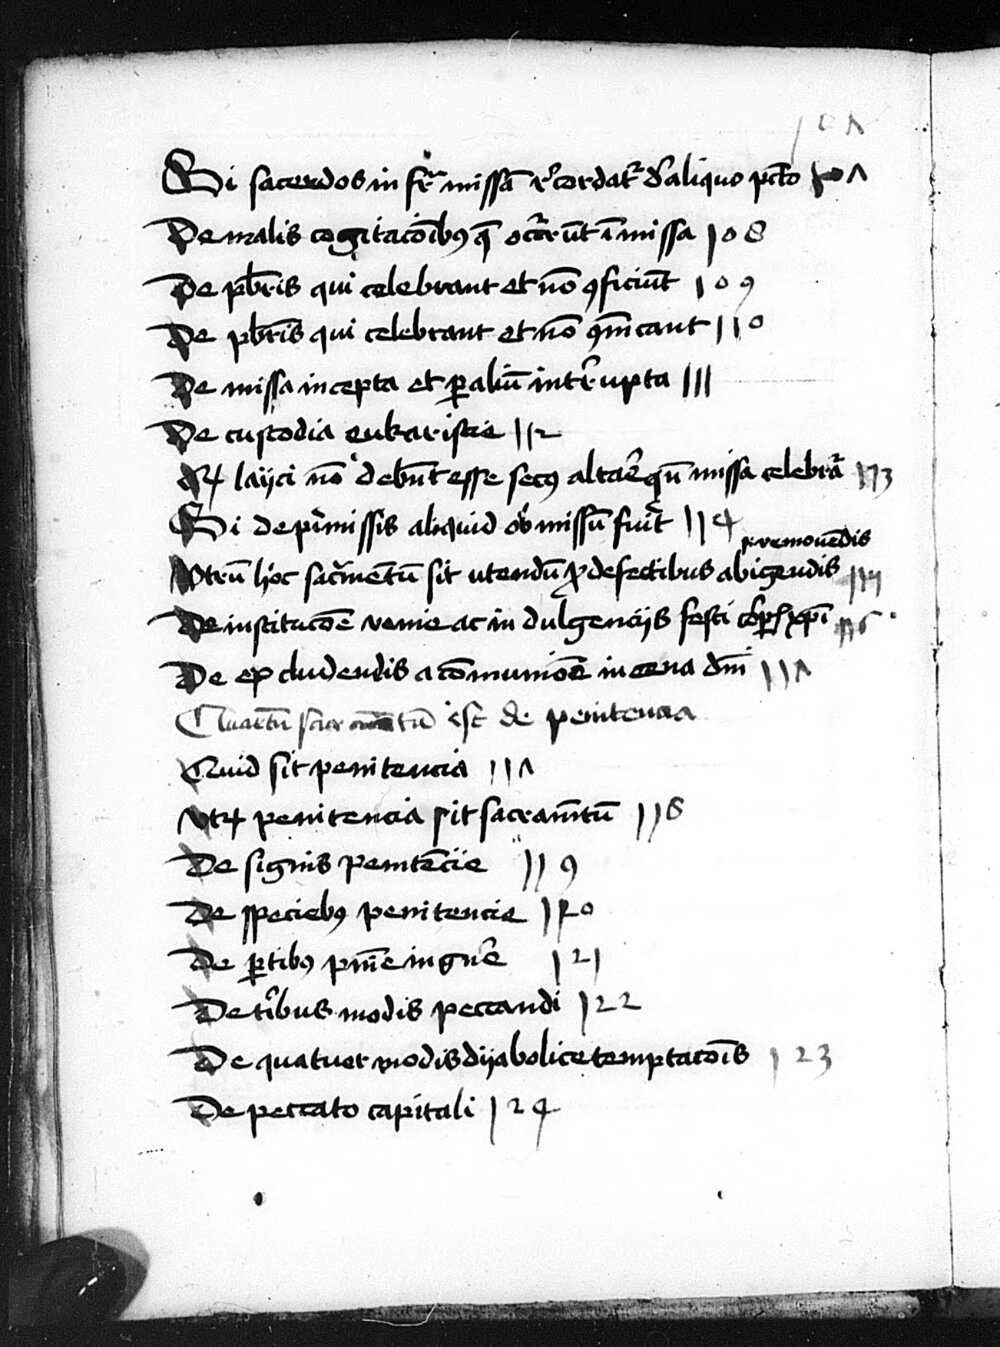 107
Si sacerdos in fr̄ missā rͨcordatʳ d̓ aliquo pctō 107
De malis cogitacōībꝰ q̄ occ̄rūt ī missa 108
De pb̄ris qui celebrant et nō ꝯficiūt 109
De pb̄ris qui celebrant et nō ꝯīcant 110
De missa incepta et ꝑ aliū intr̄rupta 111
De custodia eukaristie 112
Qꝛ layici nō debn̄t esse secꝰ altar̄ qn̄ missa celebrat̄ 113
Si de p̄missis aliquid obmissū fuit̄ 114
ł removēdis
Vtrū hoc sac̄mentū sit utendū ꝓ defectibus abigendis 115
De institucōe venie ac in dulgencijs festi corp̄ xp̄i 116
De excludendis a cōmuniōe in cena dn̄i 117
Quartū sacramentū est de penitencia
Quid sit penitencia 117
Vtꝝ penitencia sit sacramn̄tū 118
De signis penitēcie 119
De speciebꝰ penitencie 120
De ꝑtibꝰ pnīe in gn̄re 121
De tͥbus modis peccandi 122
De quatuor modis dyabolice temptacōīs 123
De peccato capitali 124